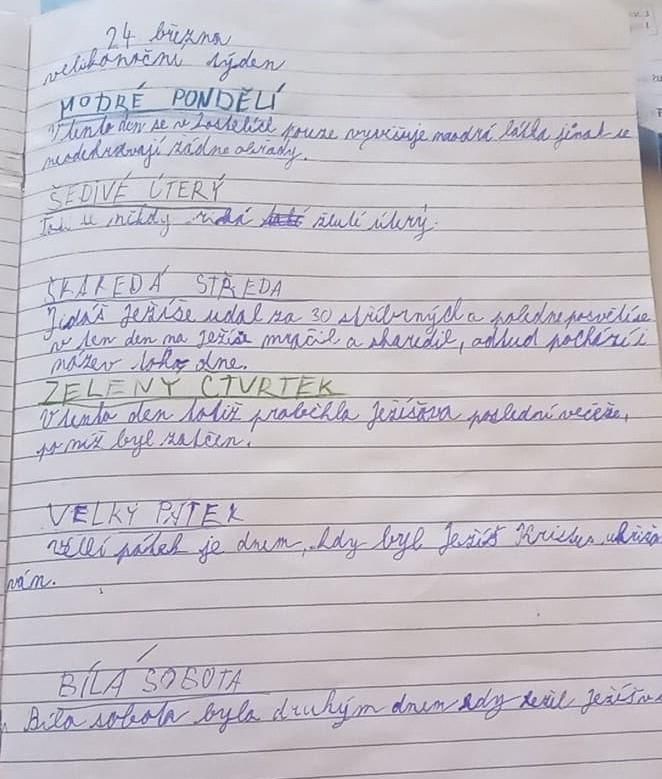 24 března
velikonoční týden
MODRÉ PONDĚLÍ
V tento den se v kostelích pouze vyvěšuje modrá látka jinak se
neodehrávají žádné obřady.
ŠEDIVÉ ÚTERÝ
se někdy říká žluté úterý.
ŠKAREDÁ STŘEDA
Jidáš Ježíše udal za 30 stříbrných a
v ten den na Ježíše mračil a škaredil, odtud pochází i
název toho dne.
ZELENÝ ČTVRTEK
V tento den totiž proběhla Ježíšova poslední večeře,
po níž byl zatčen.
VELKÝ PÁTEK
je dnem, kdy byl Ježíš Kristus ukřižo
ván.
BÍLÁ SOBOTA
Bíla sobota byla druhým dnem kdy ležel